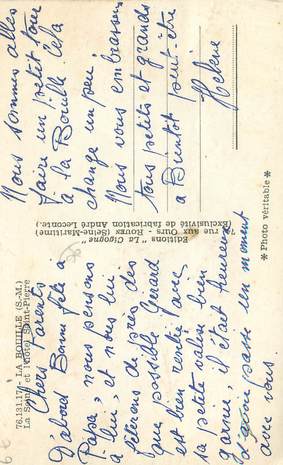 76.131.17 - LA BOUILLE (S.-M.)
La Seine et l'Hôtel Saint-Pierre
Chers
D'abord Bonne fête à
Papa, nous pensons
à lui, et nous lui
fêterons de près dès
que possible Gérard
est bien rentré avec
sa petite valise bien
garnie, il était heureux
d'avoir passé un moment
avec vous.
Editions "La Cigogne"
74 rue aux Ours - Rouen (Seine-Maritime)
(Exclusivité de fabrication André Leconte.)
* Photo véritable *
Nous sommes allés
faire un petit tour
à la Bouille. Cela
change un peu
Nous vous embrassons
tous petits et grands
à Bientôt peut-être
Hélène